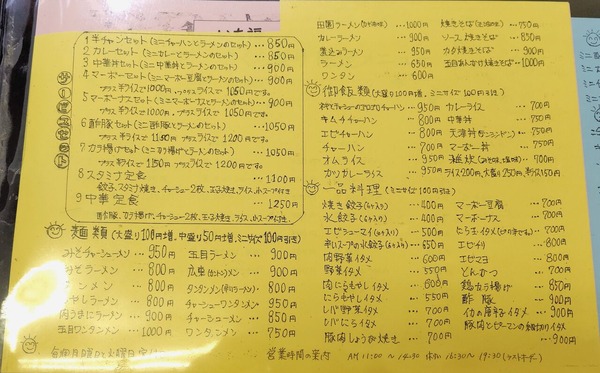 1 半チャンセット(ミニチャーハンとラーメンのセット)…850円
2 カレーセット(ミニカレーとラーメンのセット)…850円
3 中華丼セット(ミニ中華丼とラーメンのセット)…900円
4 マーボーセット(ミニマーボー豆腐とラーメンのセット)…900円
プラス半ライスで1000円、プラスライスで1050円です。
5 マーボーナスセット(ミニマーボーナスとラーメンのセット)…900円
プラス半ライスで1000円、プラスライスで1050円です。
6 酢豚セット(ミニ酢豚とラーメンのセット)…1050円
プラス半ライスで1150円 プラスライスで1200円です。
7 カラ揚げセット(ミニカラ揚げとラーメンのセット)…1050円
プラス半ライスで1150円 プラスライスで1200円です
8 スタミナ定食 …1100円
餃子、スタミナ焼き、チャーシュー2枚、玉子焼き、ライス、小スープ付き
9 中華定食 …1250円
酢豚、カラ揚げ、チャーシュー2枚、玉子焼き、ライス、小スープ付き
麺類(大盛り100円増、中盛り50円増、ミニサイズ100円引き)
みそチャーシューメン…950円
みそラーメン…800円
タンメン…800円
もやしラーメン…800円
肉うまにラーメン…900円
玉目ワンタンメン…1000円
五目ラーメン…900円
広東(カントン)メン…900円
タンタンメン(辛口ラーメン)…800円
チャーシューワンタンメン…950円
チャーシューメン…850円
ワンタンメン…750円
毎週月曜日と火曜日
ラーメン…1000円
カレーラーメン…900円
ラーメン…650円
ワンタン…600円
焼きそば…750円
ソース焼きそば…850円
カタ焼きそば…900円
五目あんかけ焼きそば…1000円
御飯類(大盛り100円増、ミニサイズ100円引き)
キムチチャーハン…800円
エビチャーハン…800円
チャーハン…700円
オムライス…950円
カツカレーライス…950円
カレーライス…700円
中華丼…700円
天津丼
マーボー丼…700円
雑炊…700円
ライス200円、大盛り250円、半ライス150円
一品料理(ミニサイズ100円引き)
焼き餃子(6ケ入り)…400円
水餃子(6ケ入り)…400円
エビシューマイ(6ケ入り)…500円
辛しスープの水餃子(6ケ入り)…650円
肉野菜イタメ…600円
野菜イタメ…550円
肉にらもやしイタメ…600円
にらもやしイタメ…550円
レバ野菜イタメ…700円
レバにらイタメ…700円
豚肉しょうが焼き…700円
マーボー豆腐…700円
マーボーナス…700円
にら玉イタメ
エビチリ…800円
エビマヨ…800円
とんかつ…700円
鶏カラ揚げ…850円
酢豚…900円
イカの唐辛子イタメ…900円
豚肉とピーマンの細切りイタメ…900円
営業時間の案内 AM 11:00~14:30 休けい 16:30~19:30(ラストオーダー)